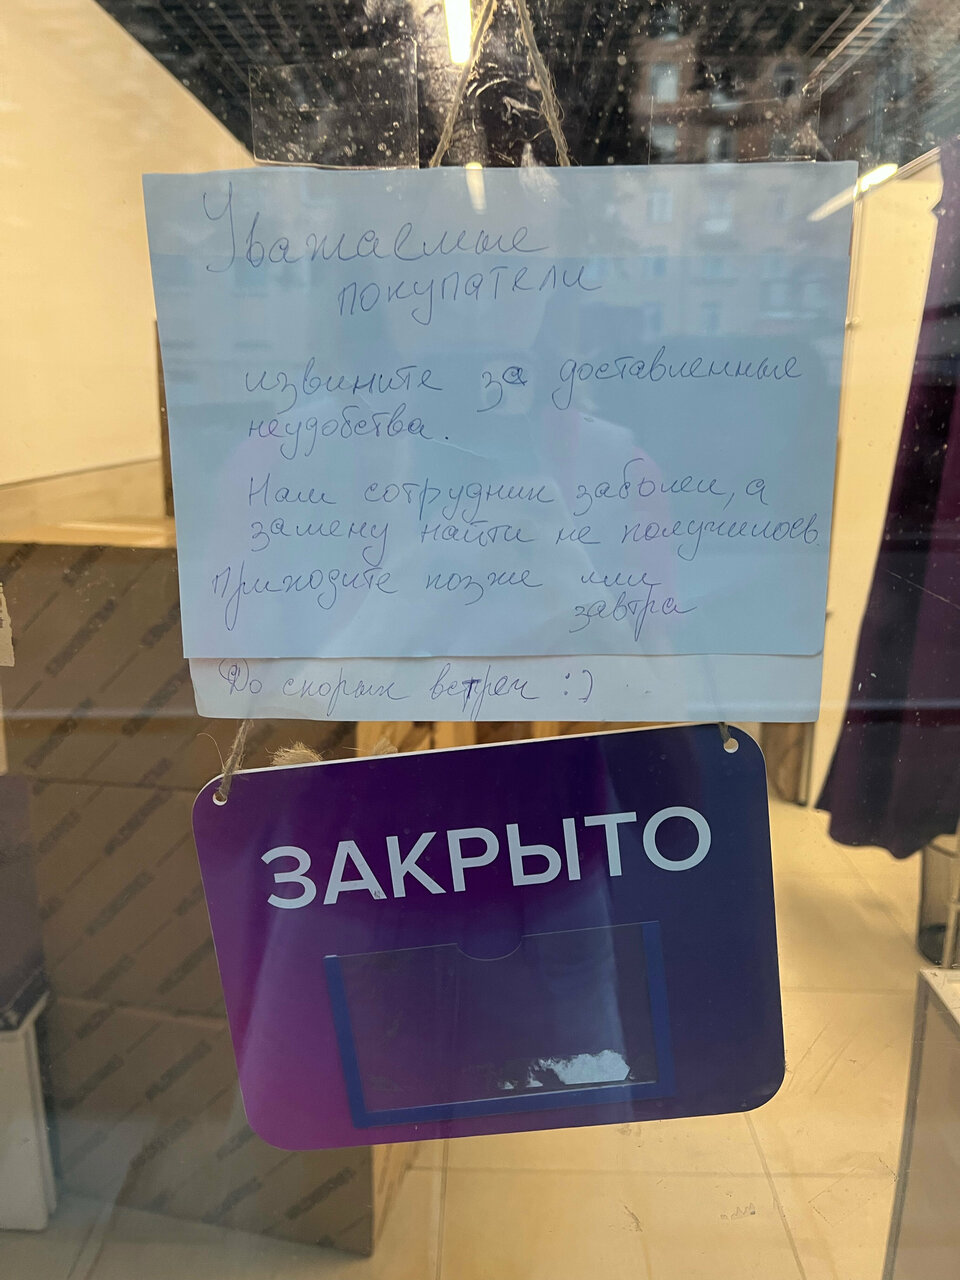 Уважаемые
покупатели
извините за доставленные
неудобства.
Наш сотрудник заболел, а
замену найти не получилось.
Приходите позже или
завтра
До скорых встреч :)
ЗАКРЫТО